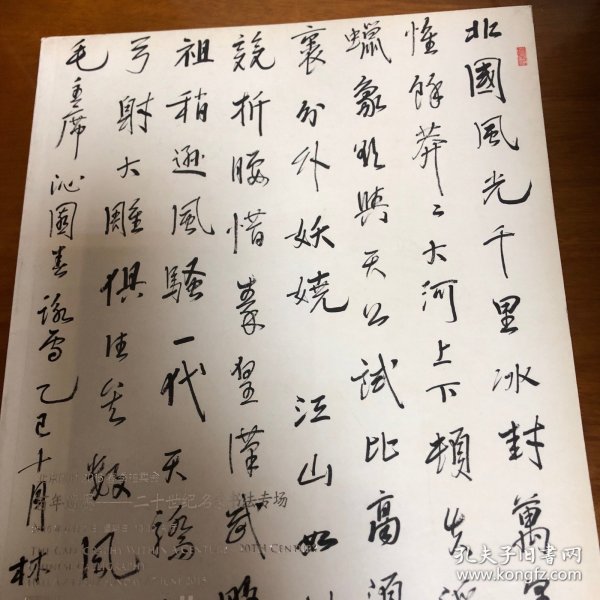 北國風光千里冰封萬里
惟餘莽〻大河上下頓失滔
蠟象欲與天公試比高須
裹分外妖嬈 江山如此
競折腰惜秦皇漢武略
祖稍遜風騷一代天驕
弓射大雕俱往矣數風
毛主席沁園春詠雪乙巳十月林
二十世纪名家书法专场
20TH CENTURY
7 JUNE 2015
孔夫子旧书网
www.kongfz.com